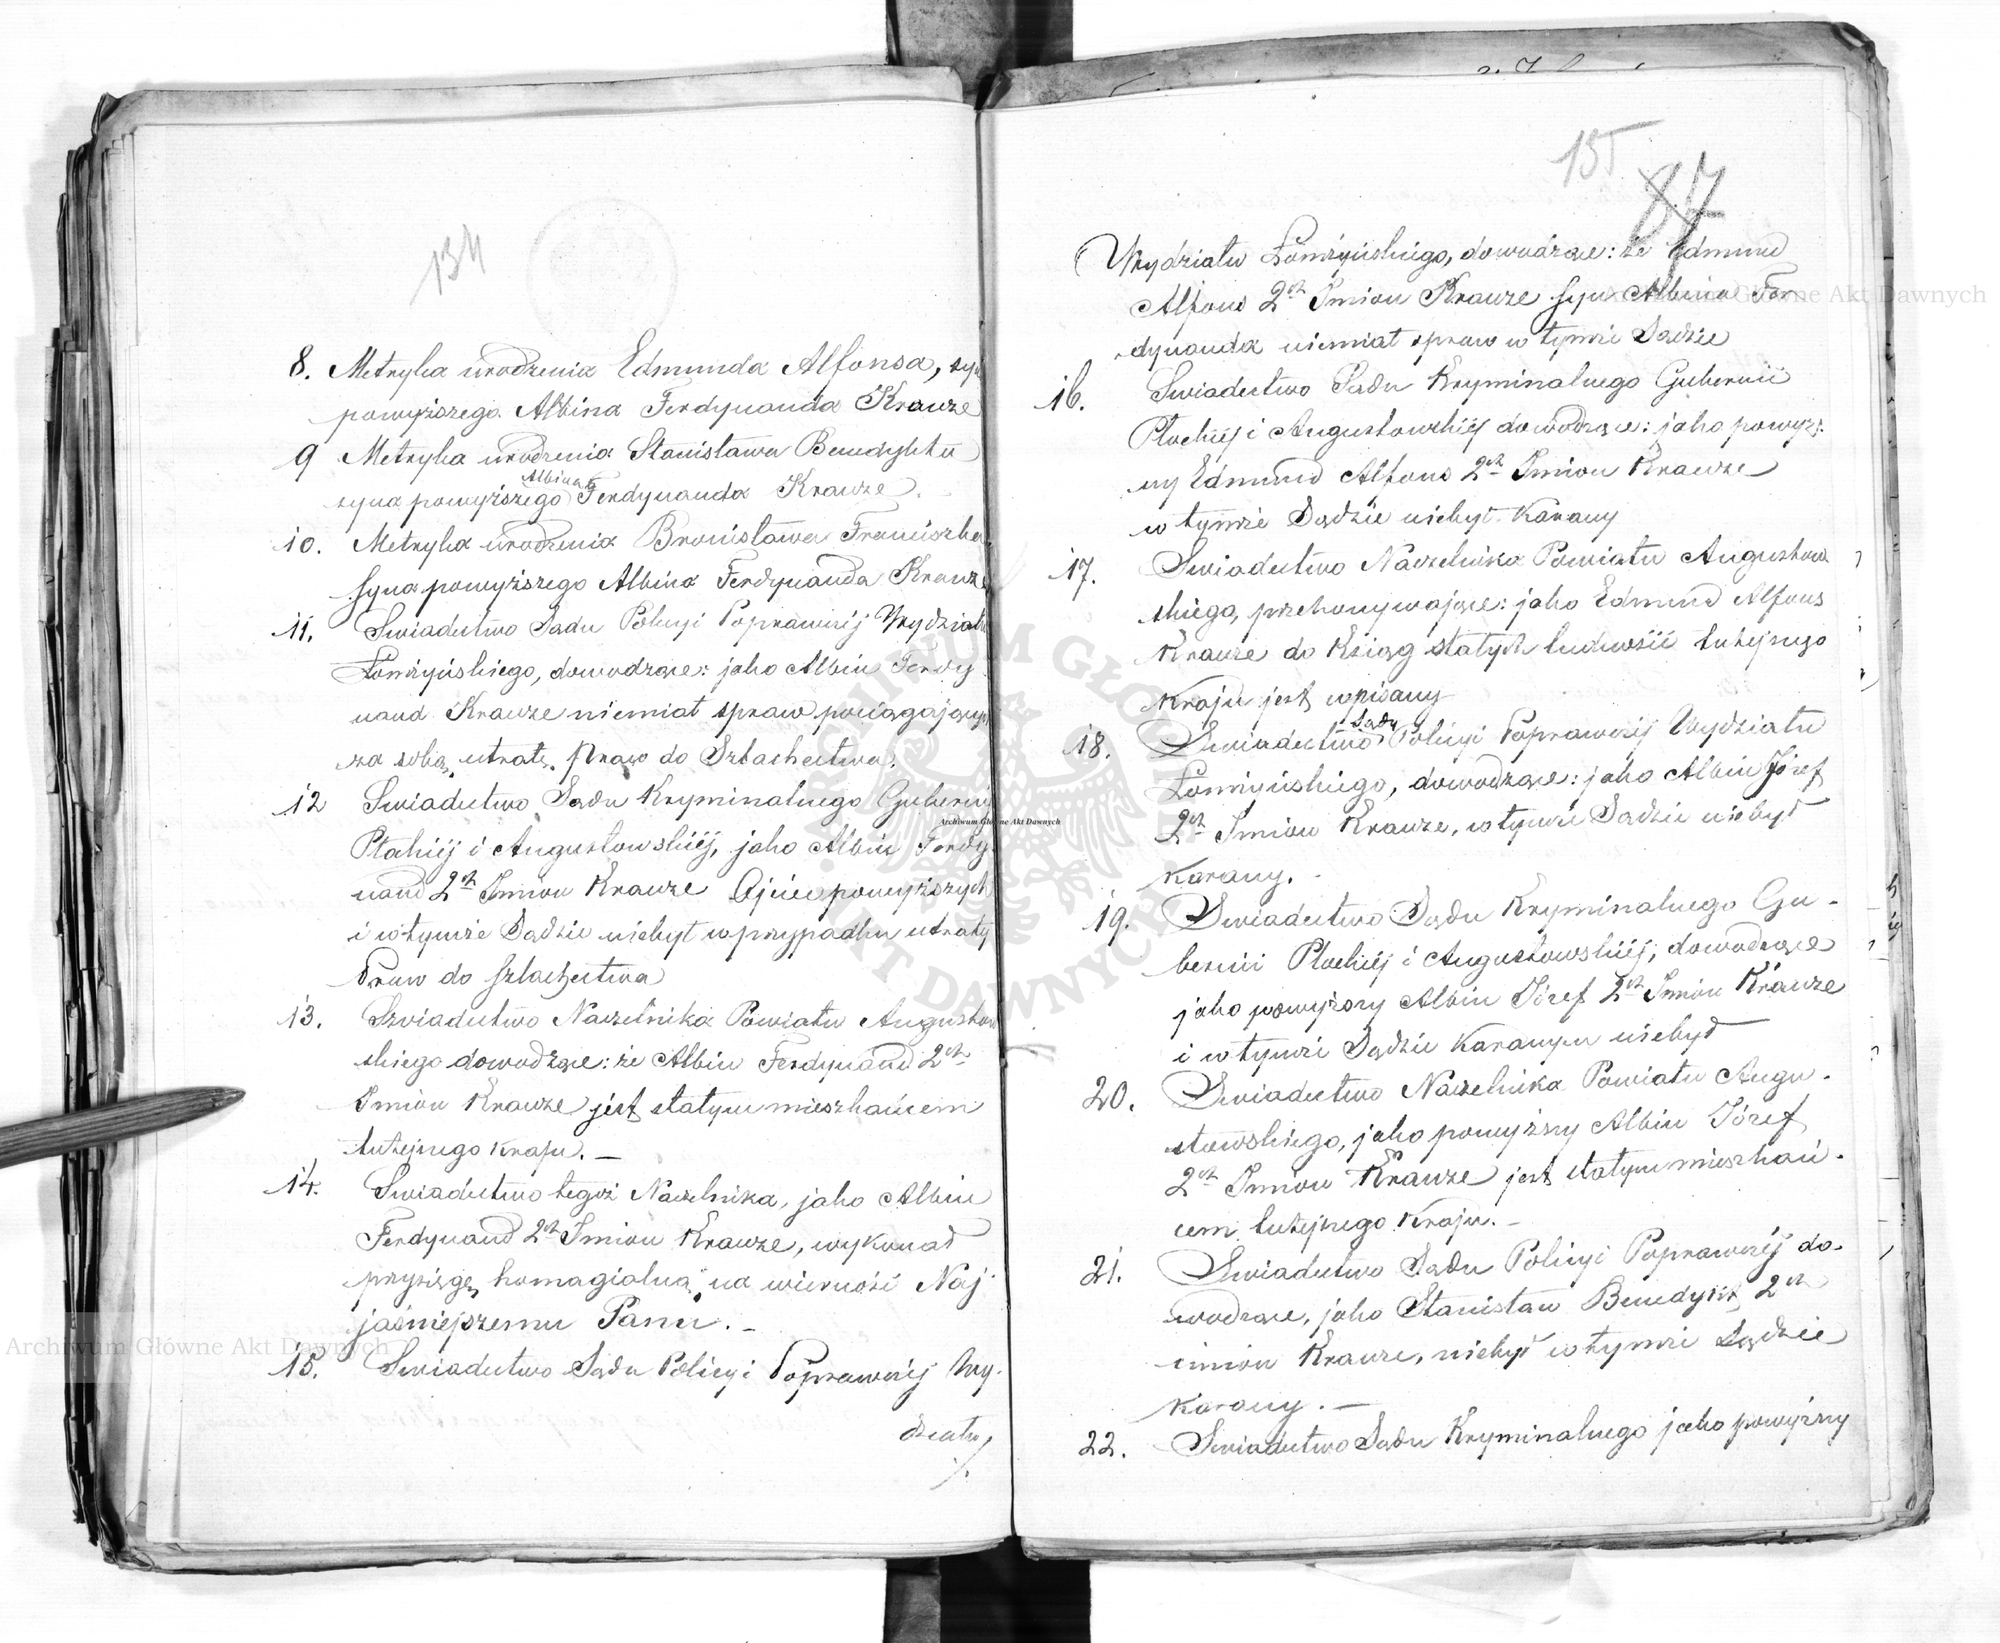 134
8. Metryka urodzenia Edmunda Alfonsa, sy
powyższego Albina Ferdynanda Krauze
9 Metryka urodzenia Stanisława Benedykta
Albina
syna powyższego Ferdynanda Krauze.
10. Metryka urodzenia Bronisława Franciszka
syna powyższego Albina Ferdynanda Krauze
11. Swiadectwo Sadu Policyi Poprawczej Wydziału
Łomżyńskiego, dowodzące: jako Albin Ferdy
nand Krauze niemiał spraw pociągających
za sobą utratę Praw do Szlachectwa.
12 Swiadectwo Sądu Kryminalnego Gubernij
Płockiéj i Augustowskiéj, jako Albin Ferdy
nand 2ch Imion Krauze Ojciec powyższych
i w tymże Sądzie niebył w przypadku utraty
Praw do szlachectwa
13. Swiadectwo Naczelnika Powiatu Augustow
skiego dowodzące: że Albin Ferdynand 2ch
Imion Krauze jest stałym mieszkańcem
tutejszego kraju. —
14. Swiadectwo tegoż Naczelnika, jako Albin
Ferdynand 2ch Imion Krauze, wykonał
przysięgę homagialną na wierność Naj
jaśniejszemu Panu. —
15. Swiadectwo Sądu Policyi Poprawczej Wy-
działu
./.
135
87
Wydziału Łomżyńskiego, dowodzące: że Edmund
Alfons 2ch Imion Krauze syn Albina Fer
dynanda niemiał spraw w tymże Sadzie
16. Swiadectwo Sadu Kryminalnego Gubernii
Płockiéj i Augustowskiéj dowodzące: jako powyż-
szy Edmund Alfons 2ch Imion Krauze
w tymże Sądzie niebył karany
17. Swiadectwo Naczelnika Powiatu Augustow
skiego, przekonywające: jako Edmund Alfons
Krauze do Ksiąg stałych ludności tutejszego
Kraju jest wpisany
Sądu
18. Swiadectwo Policyi Poprawczej Wydziału
Łomżyńskiego, dowodzące: jako Albin Józef
2ch Imion Krauze, w tymże Sadzie niebył
karany.
19. Swiadectwo Sądu Kryminalnego Gu-
bernii Płockiéj i Augustowskiéj, dowodzące
jako powyższy Albin Józef 2ch Imion Krauze
i w tymże Sądzie karanym niebył
20. Swiadectwo Naczelnika Powiatu Augu-
stowskiego, jako powyższy Albin Józef
2ch Imion Krauze jest stałym mieszkań-
cem tutejszego Kraju. —
21. Swiadectwo Sądu Policyi Poprawczéj do-
wodzące, jako Stanisław Benedykt 2ch
imion Krauze, niebył w tymże Sądzie
karany. —
22. Swiadectwo Sądu Kryminalnego jako powyższy
Archiwum Główne Akt Dawnych
Archiwum Główne Akt Dawnych
Archiwum Główne Akt Dawnych
ARCHIWUM GŁÓWNE AKT DAWNYCH